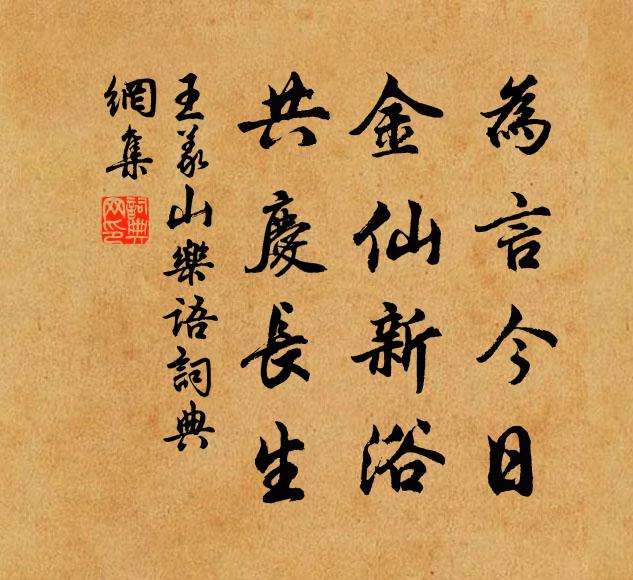 為言今日
金仙新浴
共慶長生
王義山樂語詞典
網集
詞典
网印